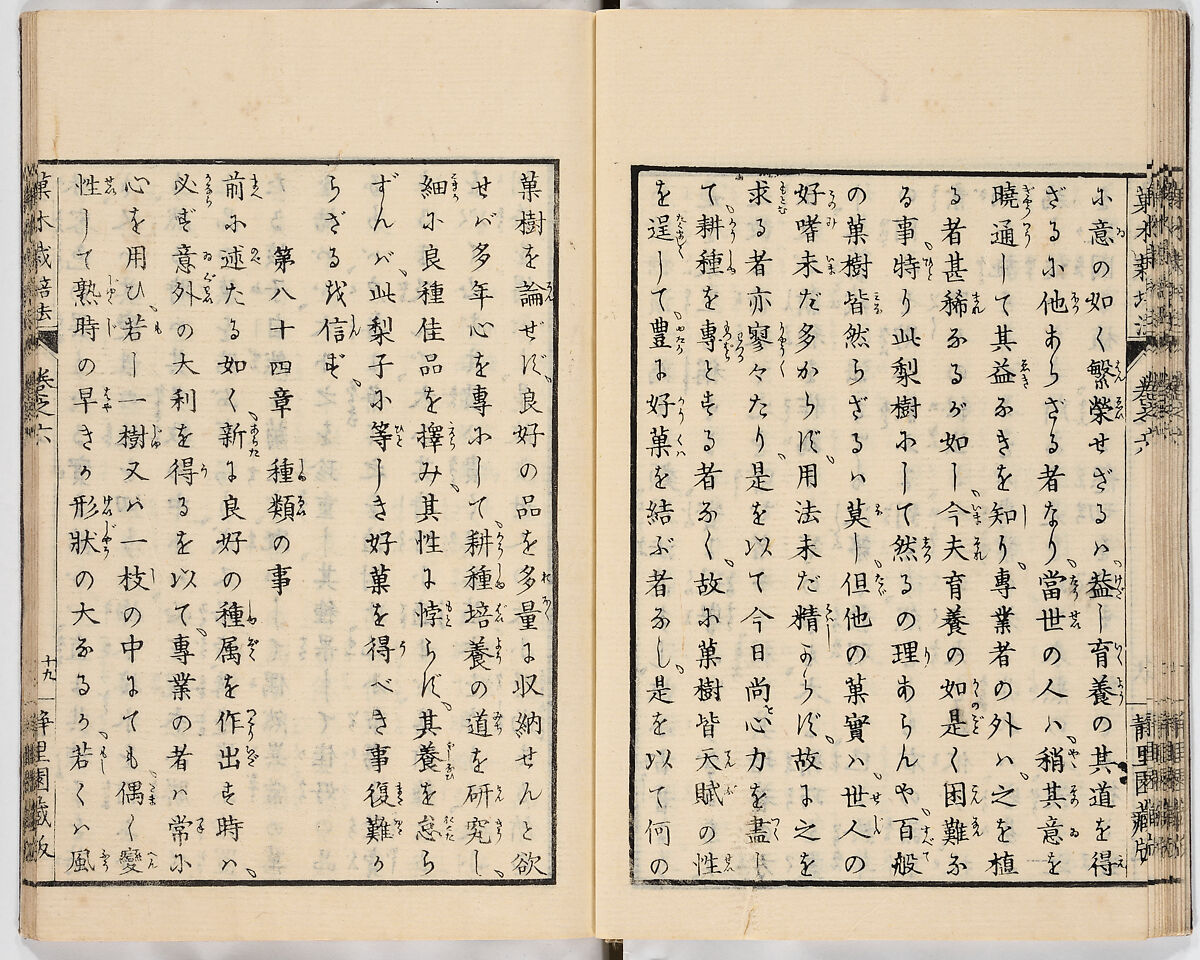 菓木栽培法 巻之六 静里園藏版
に意の如く繁榮せざるハ、蓋し育養の其道を得
ざるに他あらざる者なり、當世の人ハ、稍其意を
曉通して其益なきを知り、專業者の外ハ、之を植
る者甚稀なるが如し、今夫育養の如是く困難な
る事、特り此梨樹にして然るの理あらんや、百般
の菓樹皆然らざるハ莫し、但他の菓實ハ、世人の
好嗜未だ多からず、用法未だ精からず、故に之を
求る者亦寥々たり、是を以て今日尚心力を盡し
て、耕種を專とする者なく、故に菓樹皆天賦の性
を逞して、豊に好菓を結ぶ者なし、是を以て何の
菓樹を論ぜず、良好の品を多量に収納せんと欲
せバ、多年心を專にして、耕種培養の道を研究し、
細に良種佳品を擇み、其性に悖らず、其養を怠ら
ずんバ、此梨子に等しき好菓を得べき事復難か
らざるを信ず、
第八十四章 種類の事
前に述たる如く、新に良好の種属を作出する時ハ、
必ず意外の大利を得るを以て、專業の者ハ常に
心を用ひ、若し一樹又ハ一枝の中にても、偶く變
性して熟時の早きか形状の大なるか、若くハ風
菓木栽培法 巻之六 十九 静里園藏版